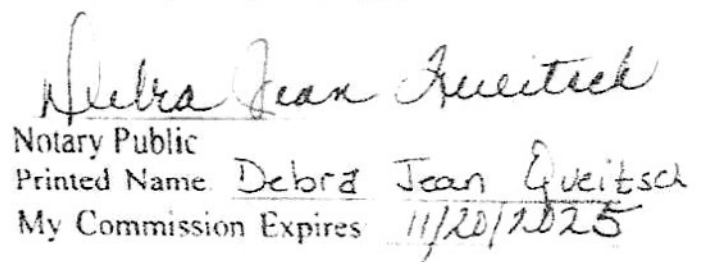 Debra Jean Queitsch
Notary Public
Printed Name Debra Jean Queitsch
My Commission Expires 11/20/2025